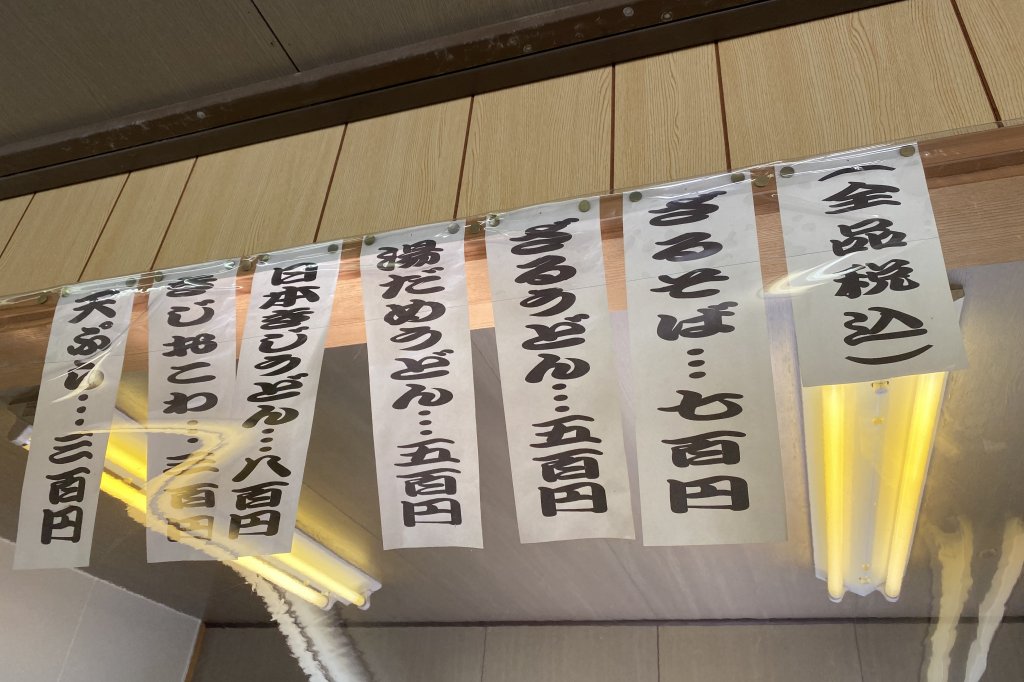 （全品税込）
ざるそば…七百円
ざるうどん…五百円
湯だめうどん…五百円
日本きじうどん…八百円
きじおこわ…百円
天ぷら…三百円